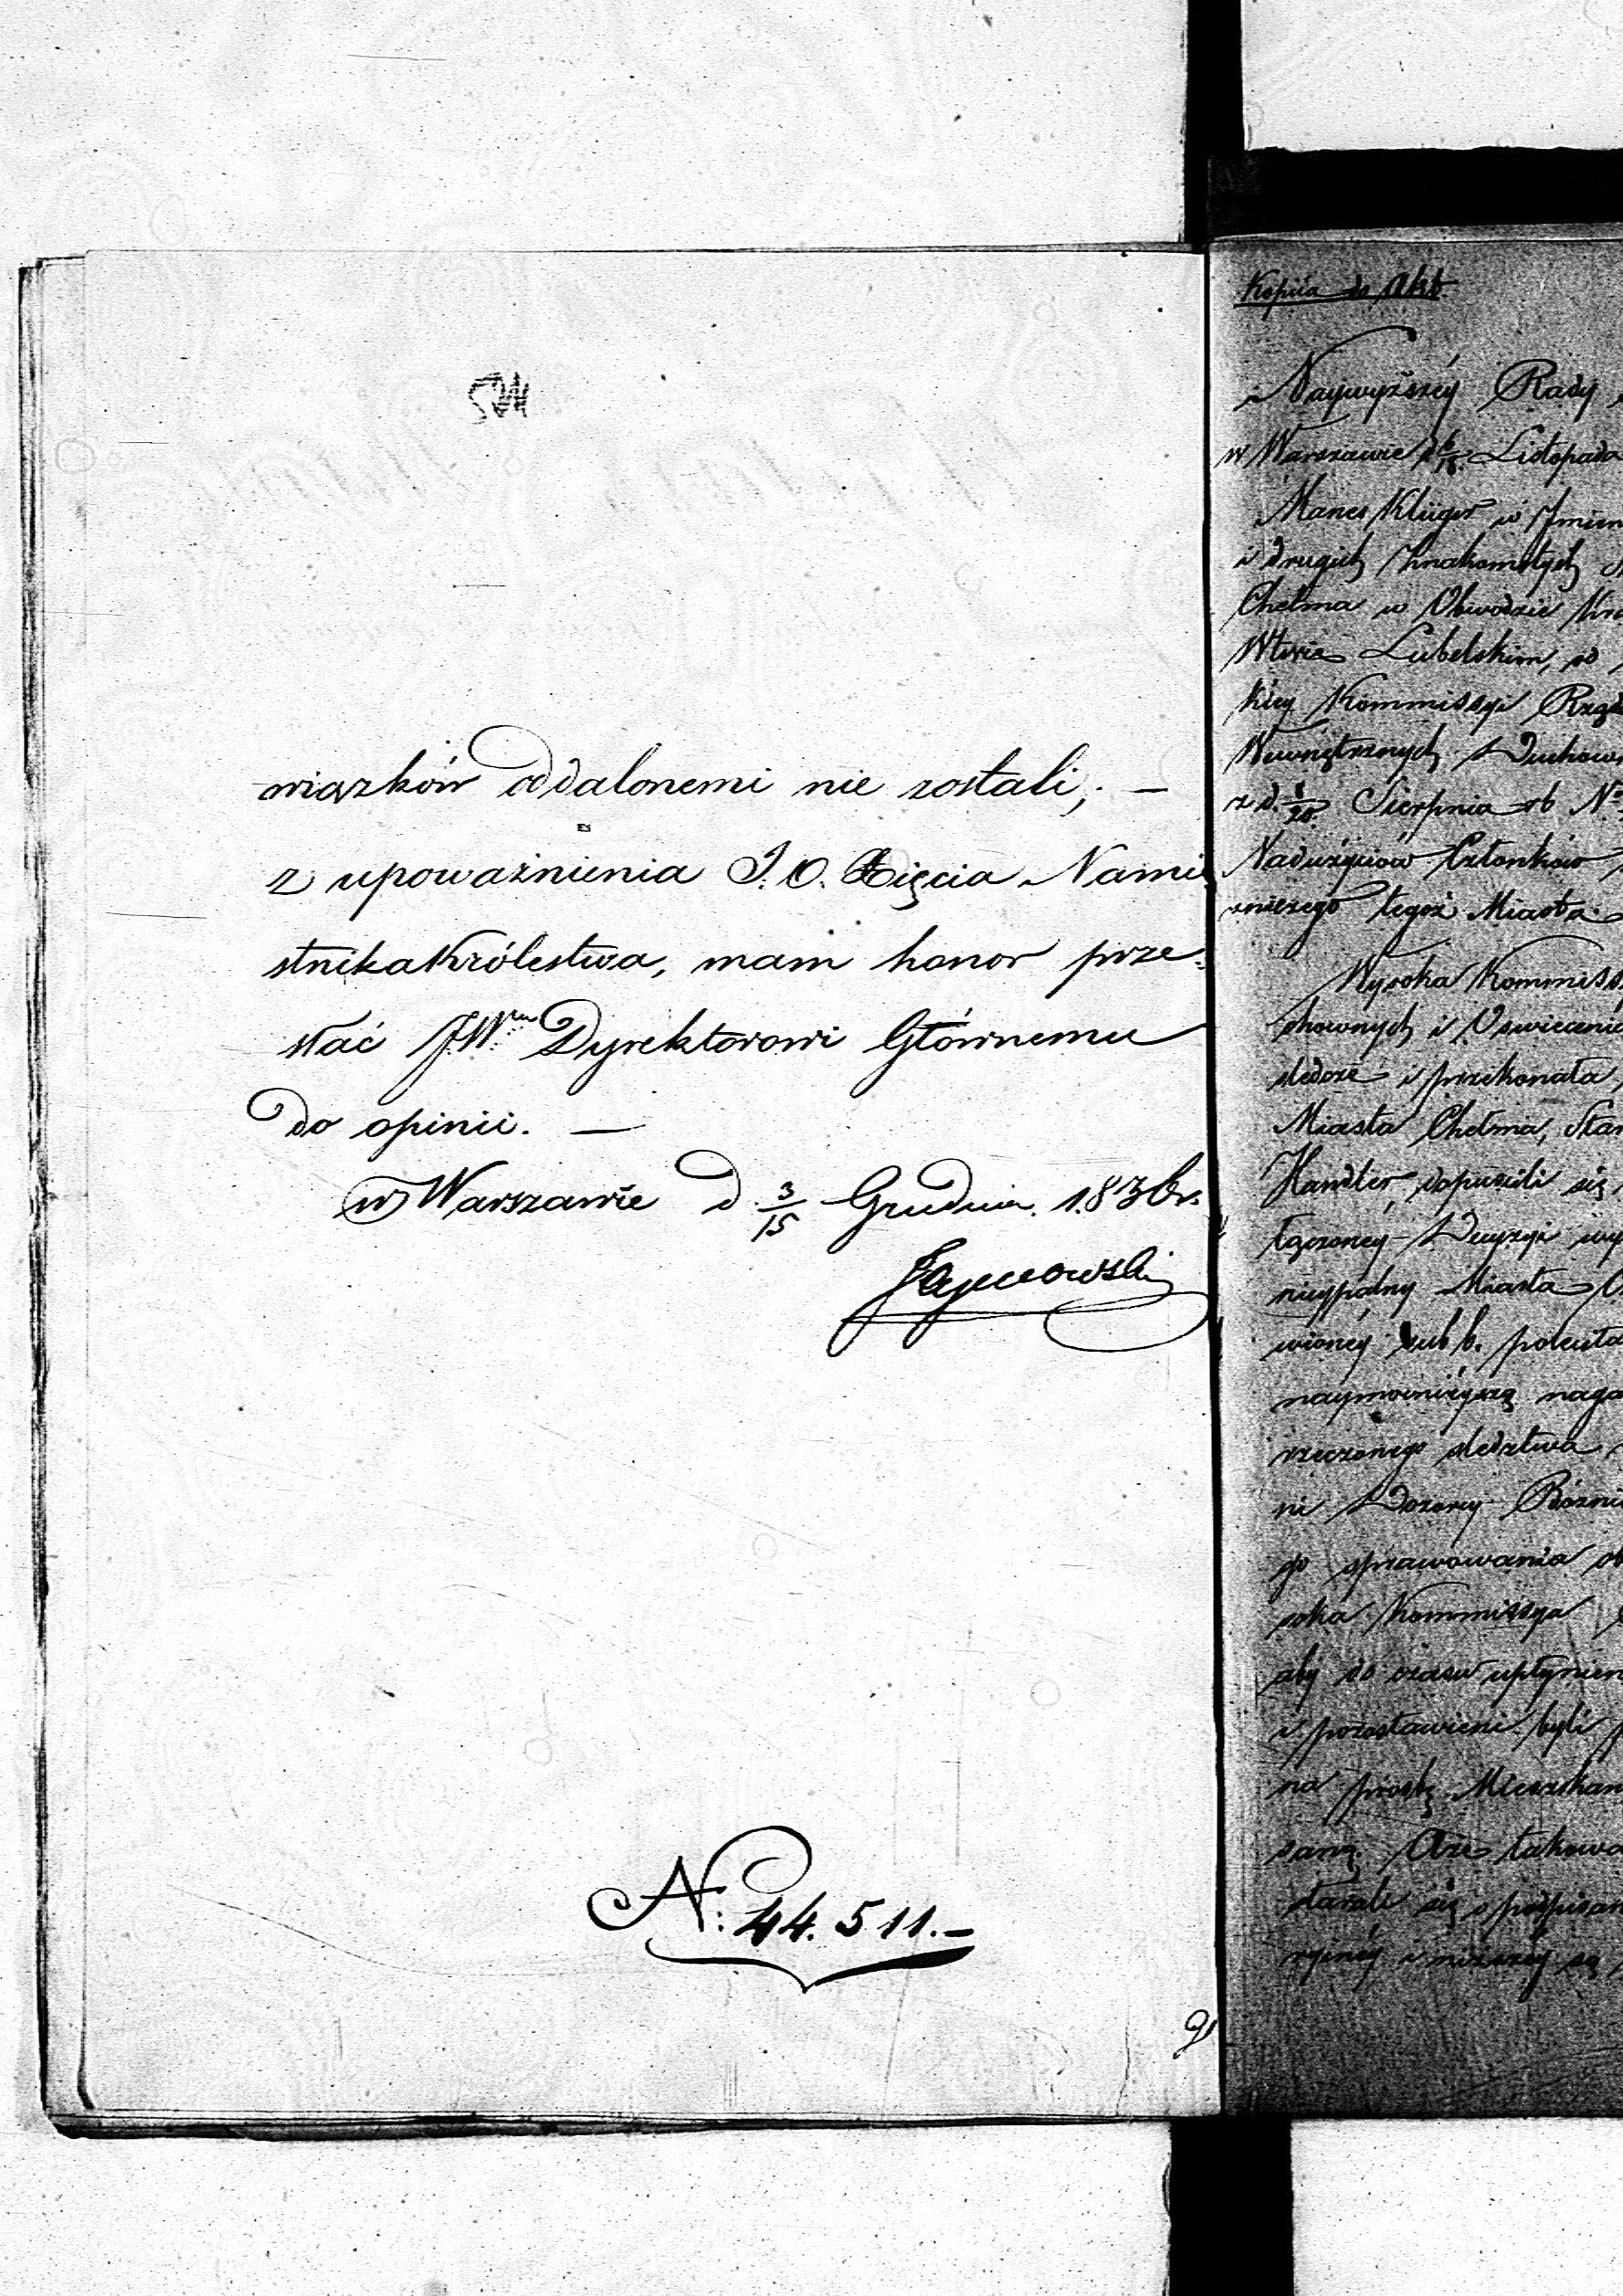 wiązków oddalonemi nie zostali; —
z upoważnienia J. O. Xięcia Namie
stnika Królestwa, mam honor prze-
słać JWmu Dyrektorowi Głównemu
do opinii. —
w Warszawie d. 3/15 Grudnia 1836 r.
N: 44.511.—
Kopiia do Akt
Naywyższéy Rady
w Warszawie d. 6/18 Listopada
Manes Klüger w Jmien
i drugich znakomitych
Chełma w Obwodzie Kra
Wtwie Lubelskim,
kiey Kommissyi Rzą
Wewnętrznych Duchow
z d. 8/20 Sierpnia rb N
Nadużyciów Członków
zniczego tegoż Miasta
Wysoka Kommiss
chownych i Oswiecenia
sledcze i przekonała
Miasta Chełma,
Handler, dopuścili się
łączonéy Decyzyi wy
nicypalny Miasta
wionéy sub b. poleciła
naymocnieyszą naga
rzeczonego sledztwa
ni Dozorcy Bóżni
go sprawowania
soka Kommissya
aby do czasu upłynien
i pozostawieni byli
na prośbę Mieszkan
saną. Oże takowa
starali się podpisan
i niższéy są